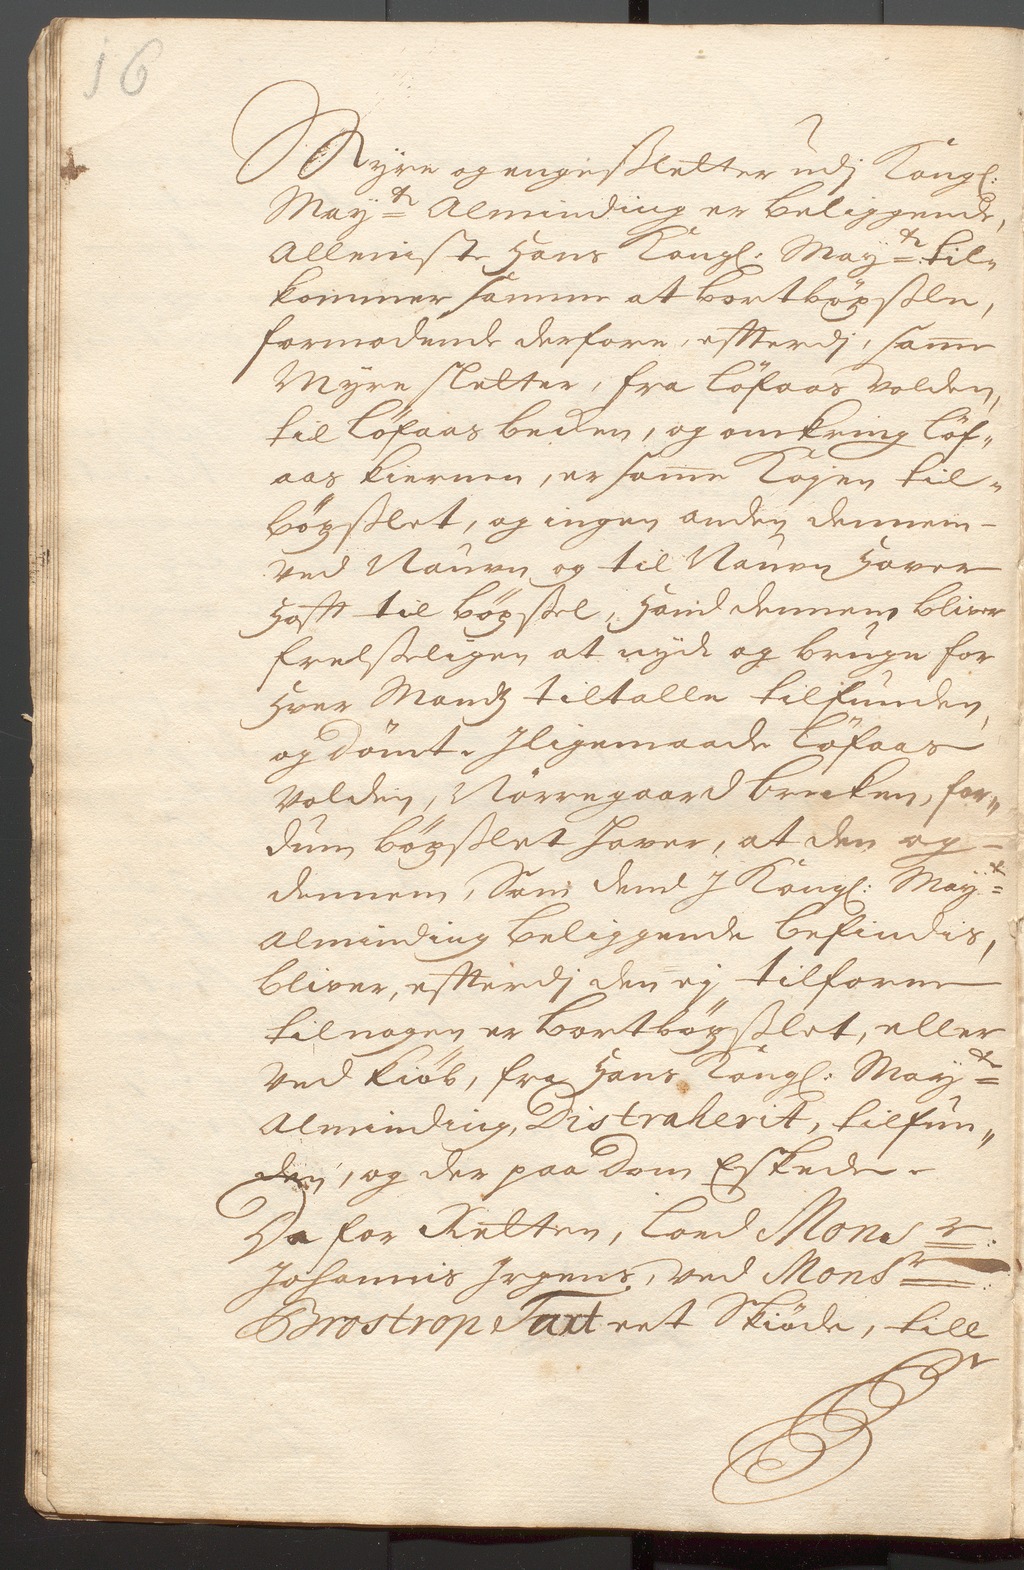 16
Myre og enge Sletter udj Kongl:
May.ts Alminding er beliggende,
Alleniste Hans Kongl: May.ts til„
kommer samme at bortböxsle,
formodende derfore, efterdj, same
Myre sletter, fra Löfaas volden,
til Löfaas becken, og omkring Löf„
aas kiernen, er same Kojen til„
böxslet, og ingen anden dennem
ved Naufn og til Naufn hafver
haft til böxsel, Hand dennem bliver
frelseligen at nyde og bruge for
hver Mands tiltalle tilfunden,
og dömt. Jligemaade Löfaas
volden, Nörregaard brecken, for„
dum böxslet hafver, at den og
dennem, Som dend J Kongl: May.ts
Alminding beliggende befindis,
bliver, efterdj den ej tilforne
til nogen er bortböxslet, eller
ved kiöb, fra Hans Kongl: May.ts
Alminding, Distraherit, tilfun„
den, og der paa Dom Eskede.
Da for Retten, loed Mons.r
Johannis Jrgens, ved Mons.r
Brostrop Taxt eet Skiöde, till